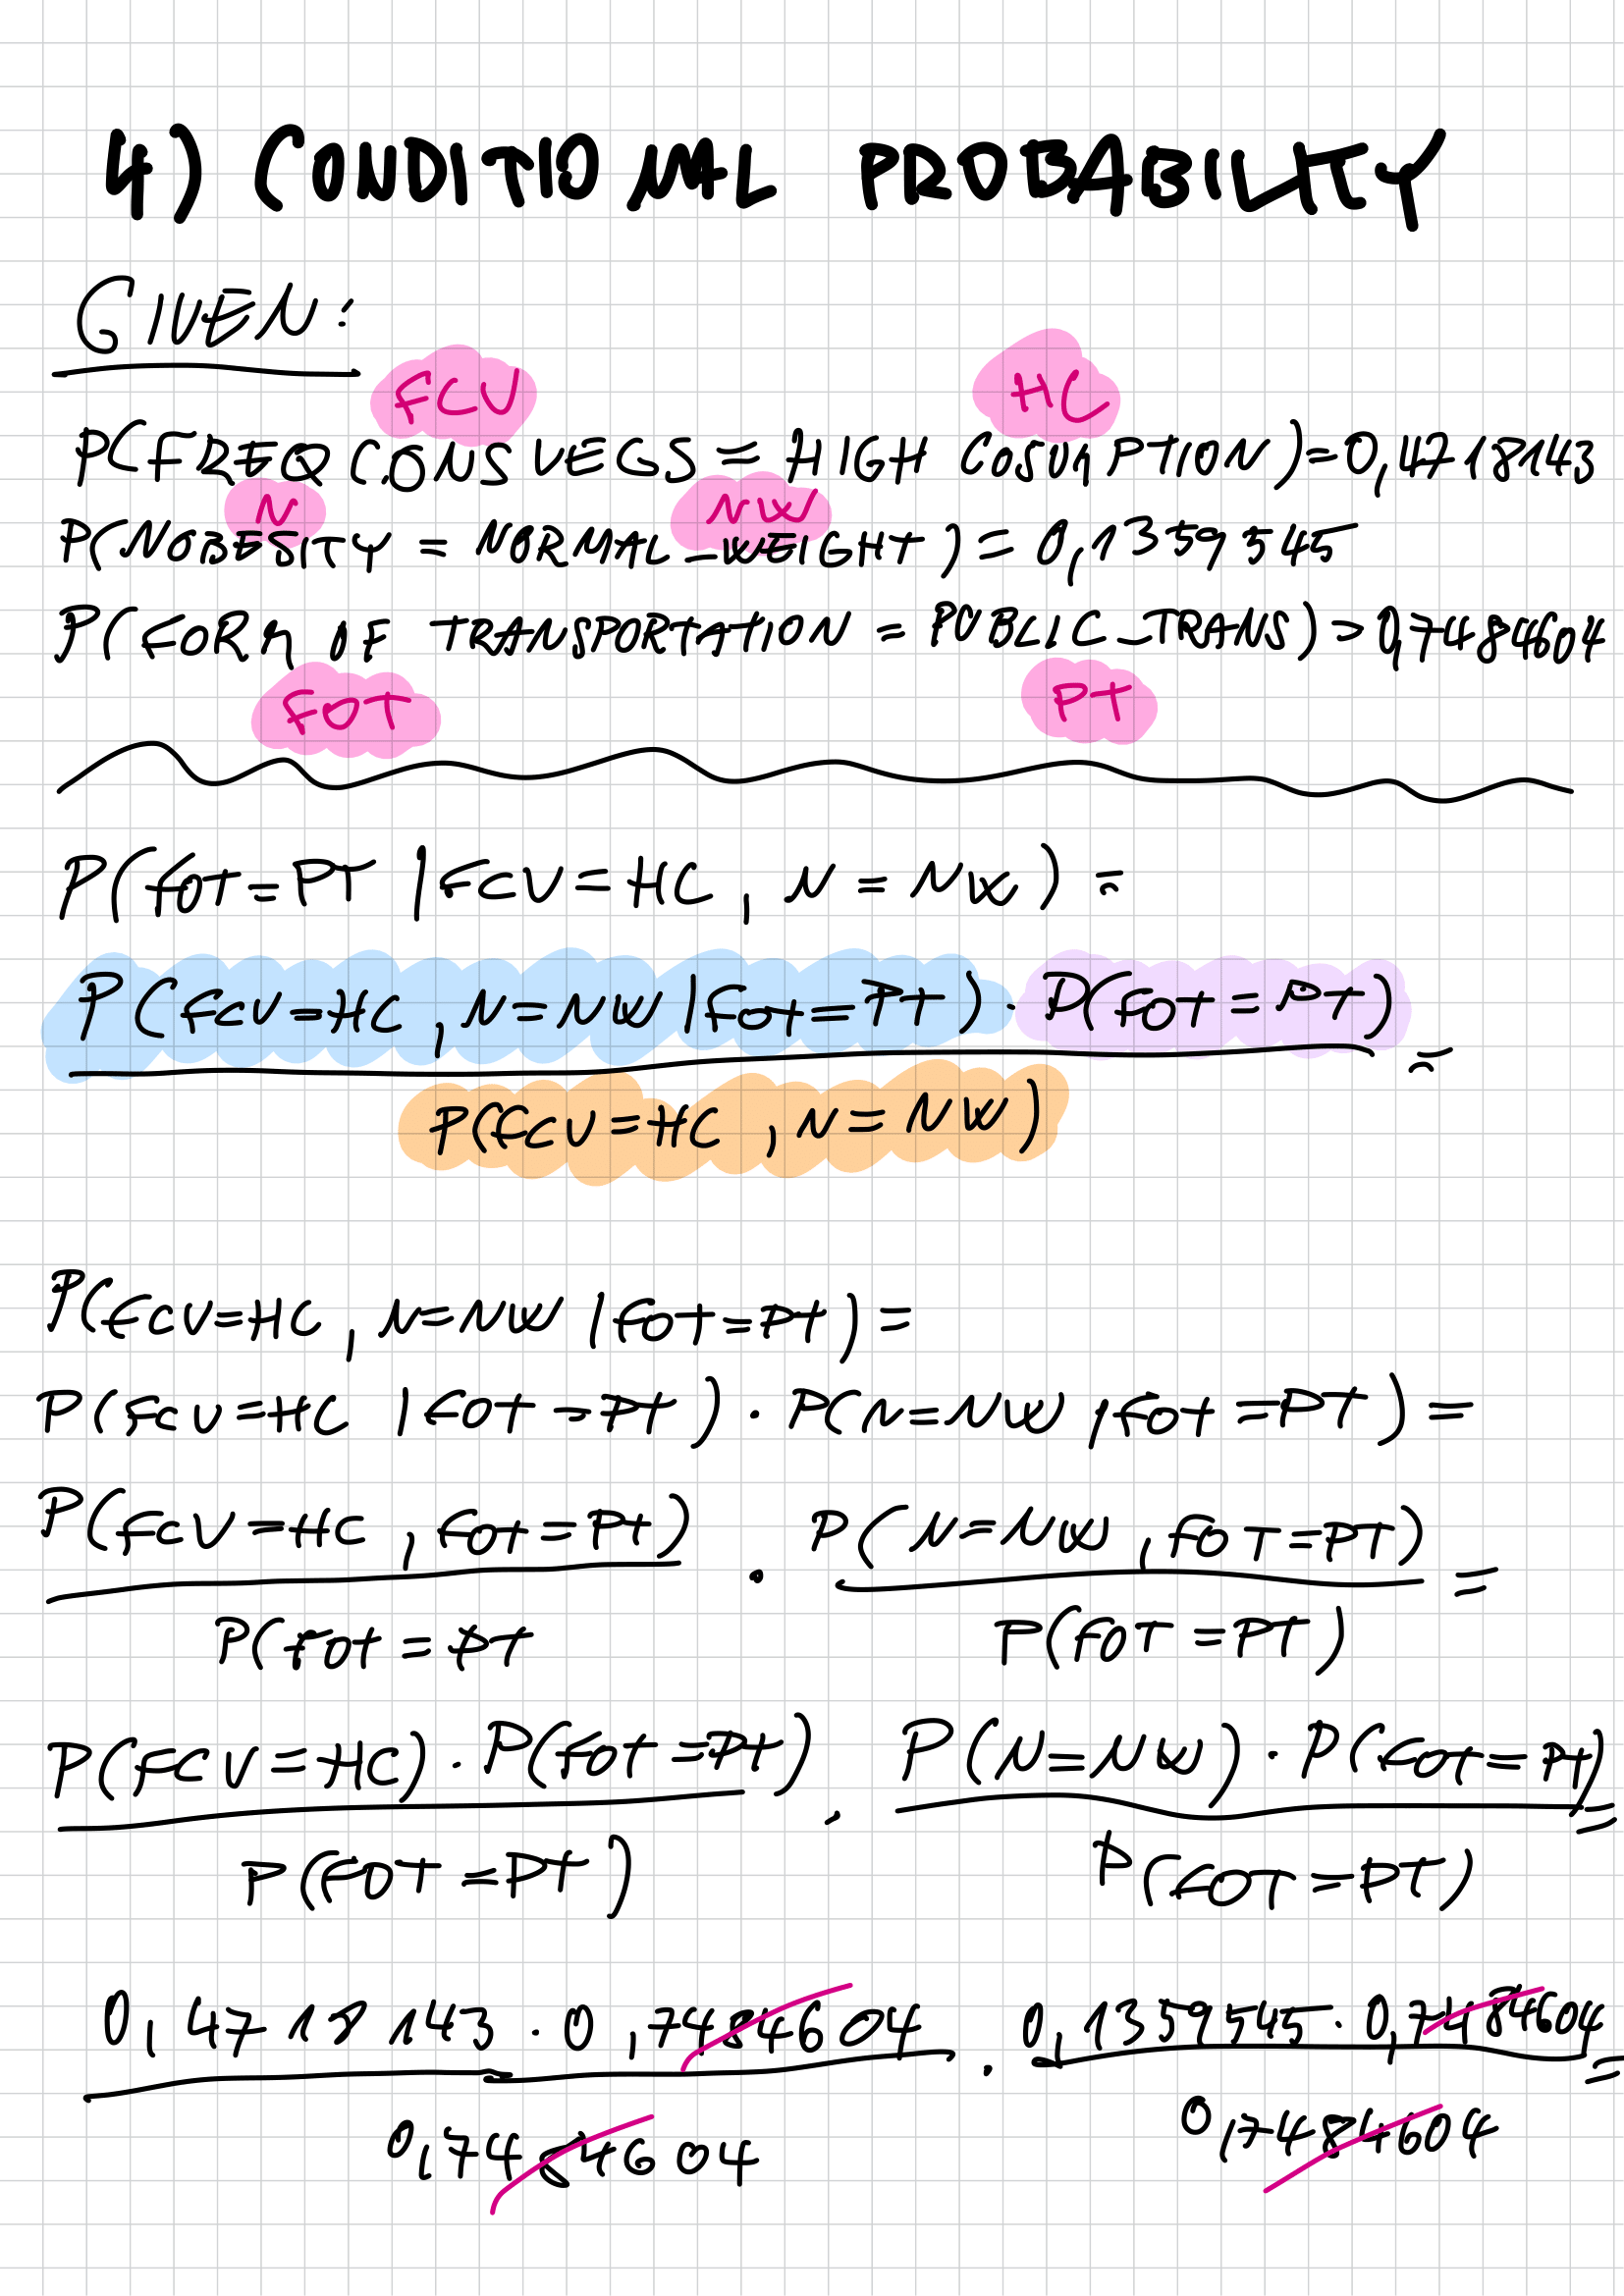 4) CONDITIONAL PROBABILITY
GIVEN:
FCV HC
P(FREQ CONS VEGS = HIGH COSUMPTION) = 0,4718143
N NW
P(NOBESITY = NORMAL_WEIGHT) = 0,1359545
P(FORM OF TRANSPORTATION = PUBLIC_TRANS) = 0,7484604
FOT PT
P(FOT=PT | FCV=HC, N=NW) =
P(FCV=HC, N=NW | FOT=PT) · P(FOT=PT) =
P(FCV=HC, N=NW)
P(FCV=HC, N=NW | FOT=PT) =
P(FCV=HC | FOT=PT) · P(N=NW | FOT=PT) =
P(FCV=HC, FOT=PT) · P(N=NW, FOT=PT) =
P(FOT=PT P(FOT=PT)
P(FCV=HC) · P(FOT=PT) · P(N=NW) · P(FOT=PT) =
P(FOT=PT) P(FOT=PT)
0,4718143 · 0,7484604 · 0,1359545 · 0,7484604 =
0,7484604 0,7484604